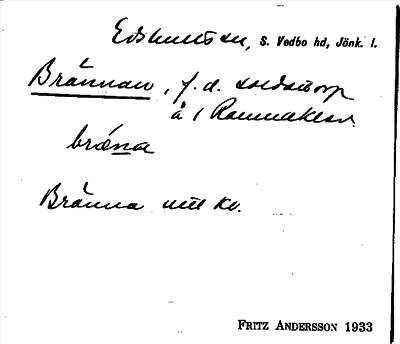 Edshults sn, S. Vedbo hd, Jönk. l.
Brännan, f.d. soldattorp
å 1 Rommaklav.
bræna
Bränna utt kv.
FRITZ ANDERSSON 1933